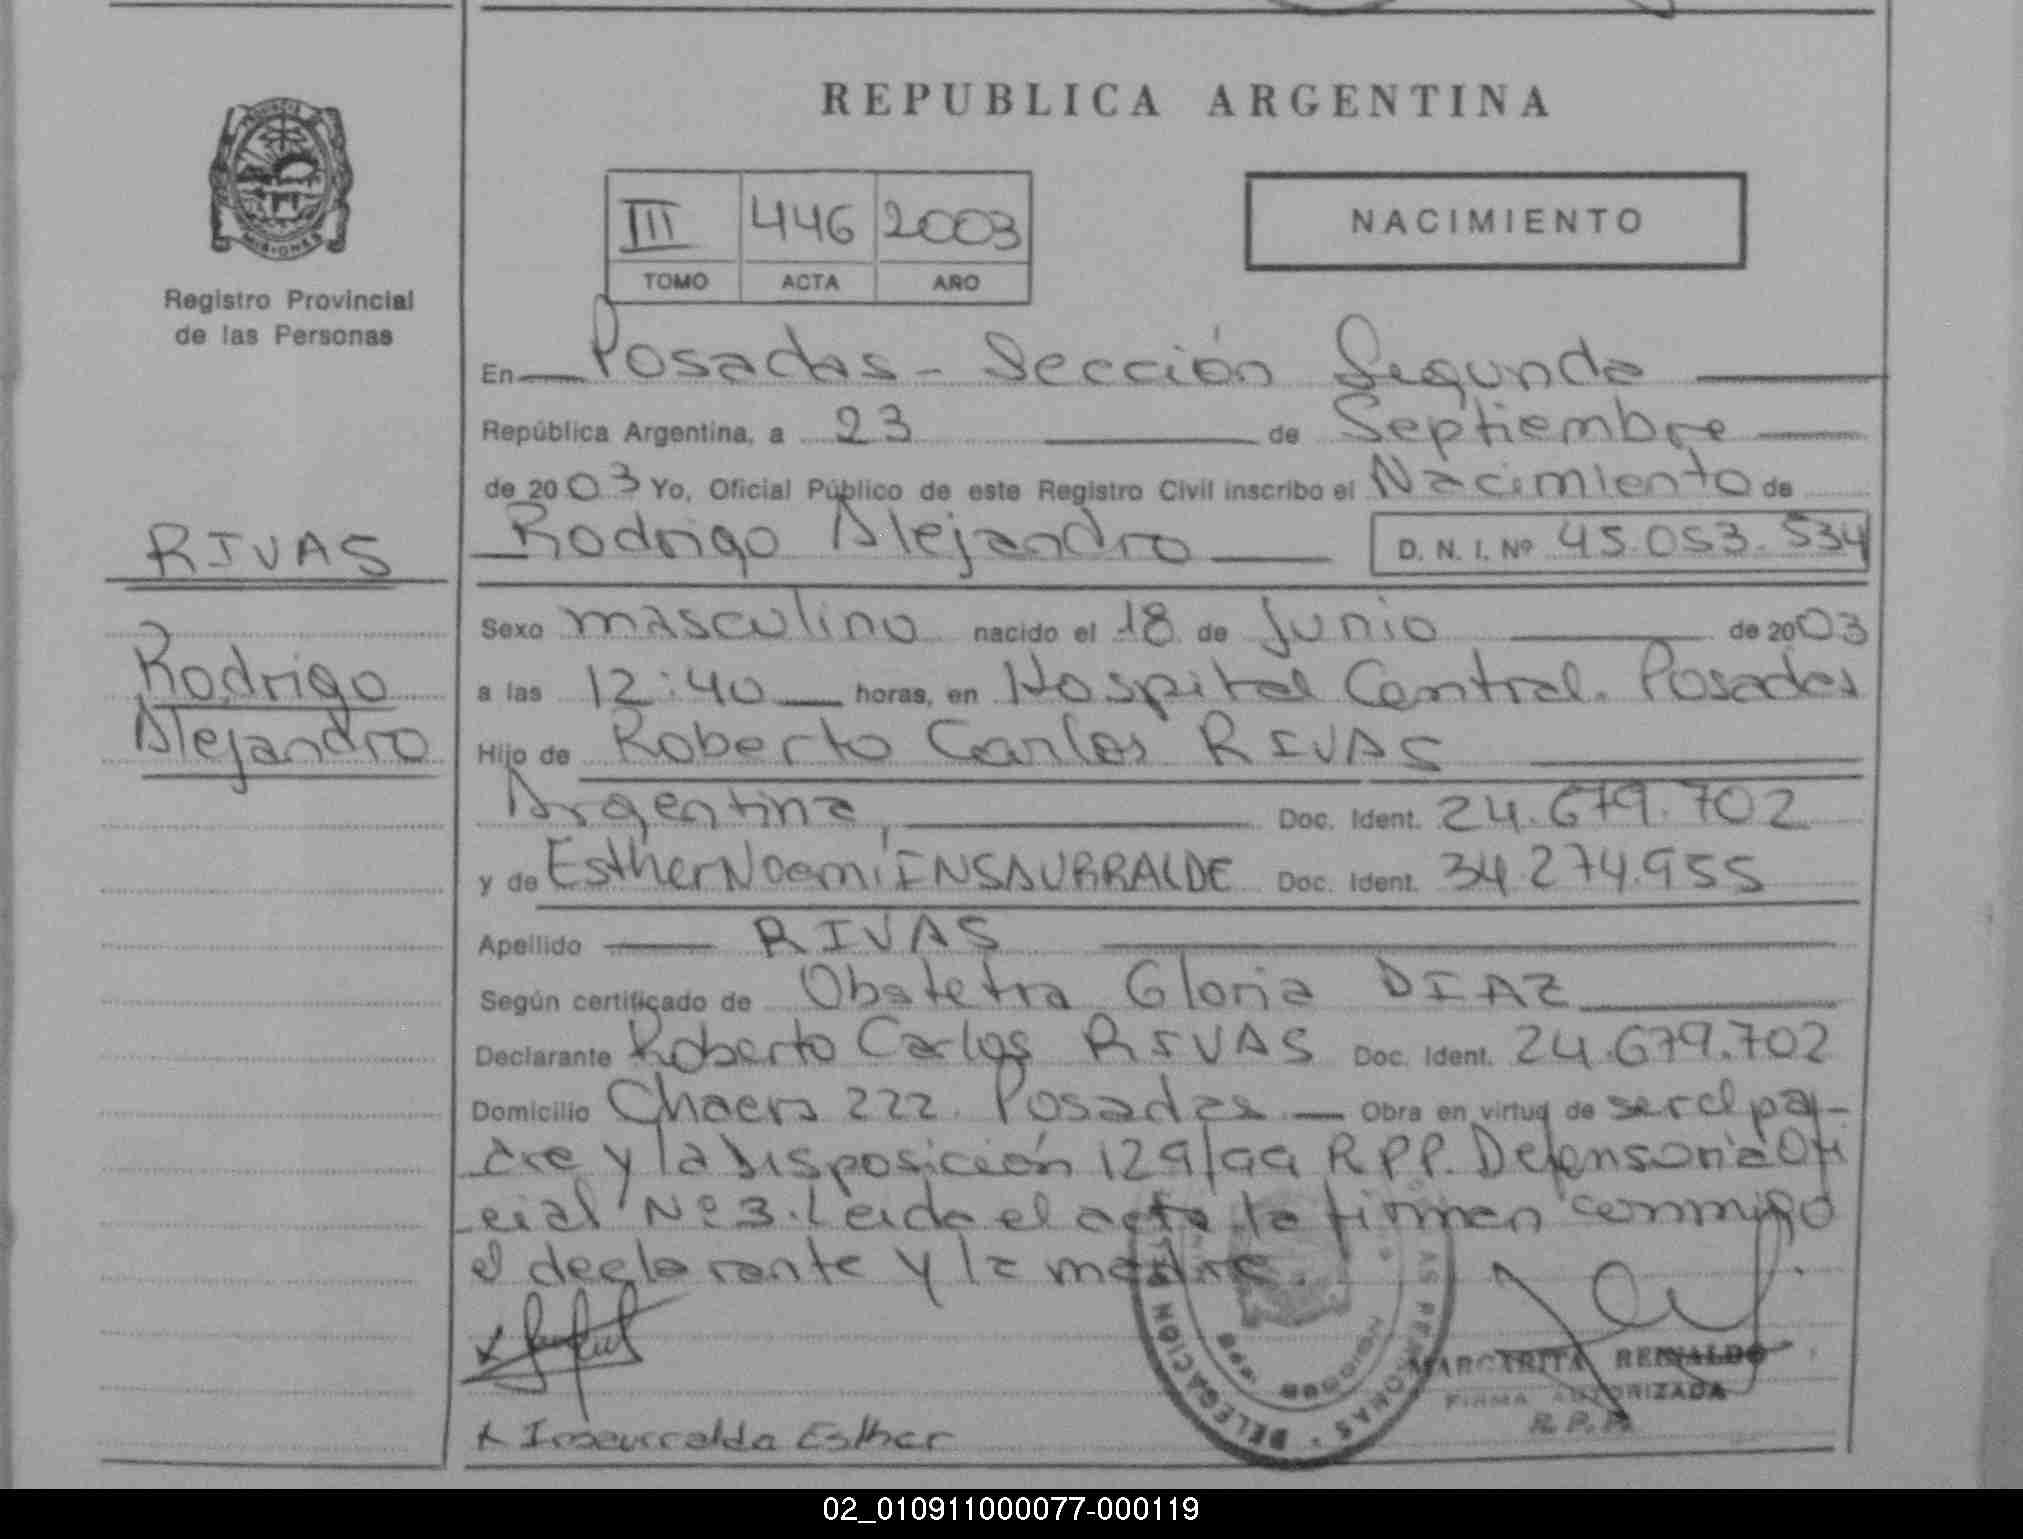 REPUBLICA ARGENTINA
PROVINCIA
MISIONES
Registro Provincial
de las Personas
III 446 2003
TOMO ACTA AÑO
NACIMIENTO
En Posadas - Sección Segunda
República Argentina, a 23 de Septiembre
de 2003 Yo, Oficial Público de este Registro Civil inscribo el Nacimiento de
Rodrigo Alejandro D. N. I. Nº 45.053.534
RIVAS
Rodrigo
Alejandro
Sexo masculino nacido el 18 de Junio de 2003
a las 12:40 horas, en Hospital Central. Posadas
Hijo de Roberto Carlos RIVAS
Argentina, Doc. Ident. 24.679.702
y de Esther Noemí INSAURRALDE Doc. Ident. 34.274.955
Apellido RIVAS
Según certificado de Obstetra Gloria DIAZ
Declarante Roberto Carlos RIVAS Doc. Ident. 24.679.702
Domicilio 222. Posadas Obra en virtud de ser el pa-
dre y la disposición 129/99 R.P.P. Defensoria Ofi
cial Nº 3. Leida el acta la firman conmigo
el declarante y la madre.
DELEGACION
MARGARITA REINALDO
FIRMA AUTORIZADA
R.P.P.
x Insaurralda Esther
02_010911000077-000119